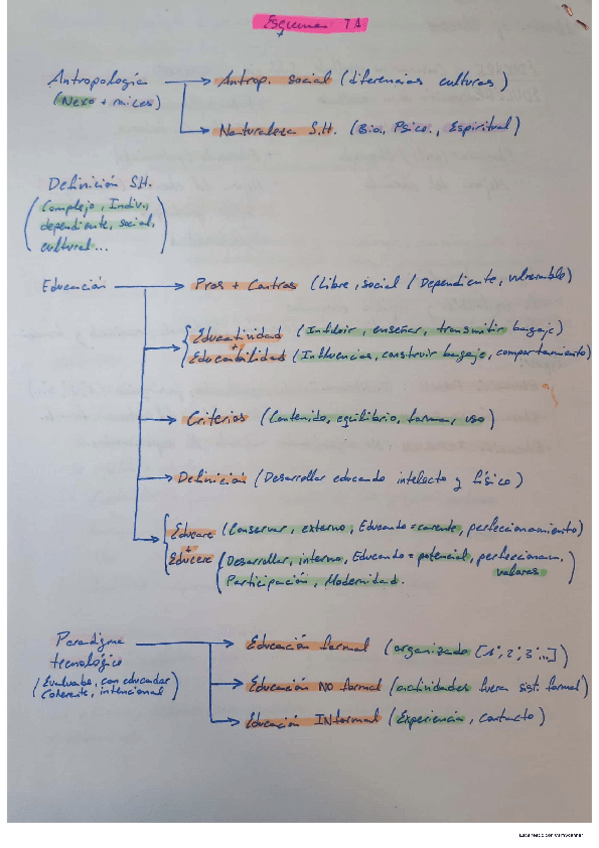 Esquema 1A
Antropología → Antrop. social (diferencias culturas)
(Nexo + raíces)
Naturaleza S.H. (Bio, Psico., Espiritual)
Definición S.H.
(Complejo, Indiv.,
dependiente, social,
cultural...)
Educación → Pros + Contras (Libre, social / Dependiente, vulnerable)
Educatividad (Influir, enseñar, transmitir bagaje)
+
Educabilidad (Influencias, construir bagaje, comportamiento)
Criterios (Contenido, equilibrio, forma, uso)
Definición (Desarrollar educando intelecto y físico)
Educare (Conservar, externo, Educando = carente, perfeccionamiento)
+
Educere (Desarrollar, interno, Educando = potencial, perfeccionam.
valores
Participación, Modernidad.)
Paradigma → Educación formal (organizado [1º, 2º, 3º...])
tecnológico
(Evaluable, con educador → Educación NO formal (actividades fuera sist. formal)
Coherente, intencional)
Educación INformal (Experiencia, contacto)